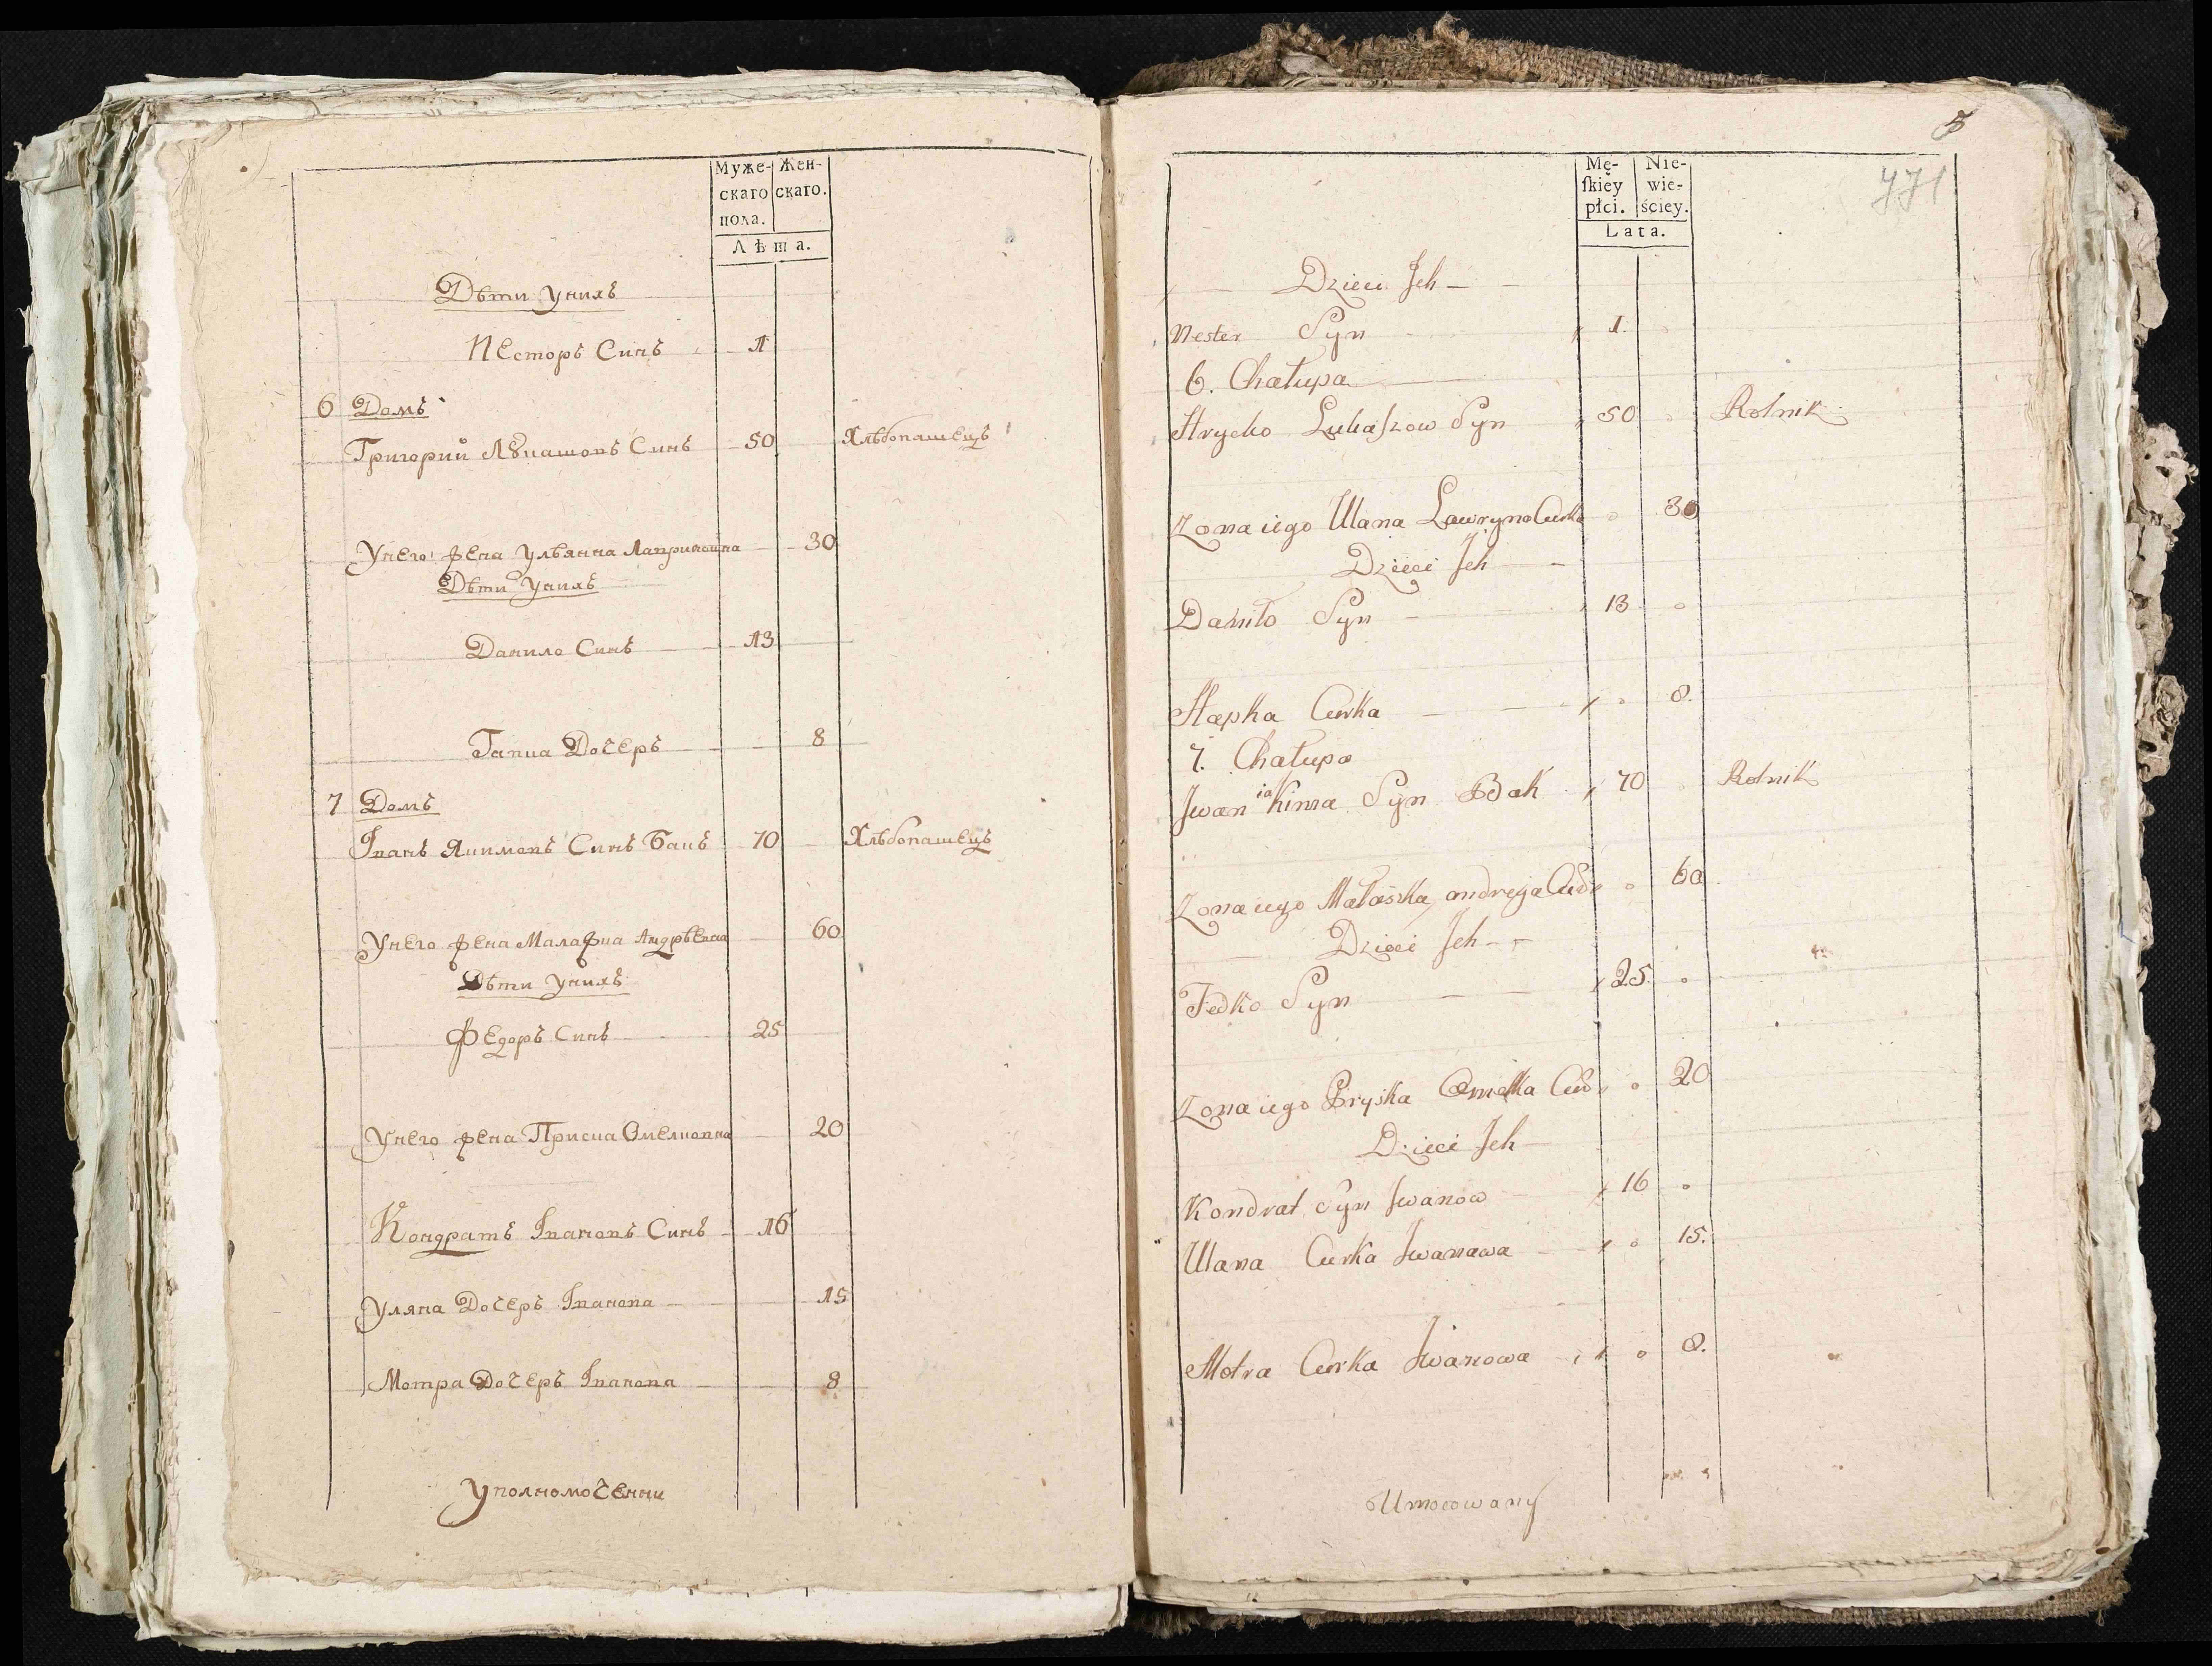 Муже-
скаго
пола.
Жен-
скаго.
Лѣта.
Дѣти унихъ
Несторъ Синъ 1
6 Домъ
Григорий Лукашовъ Синъ 50 Хлѣбопашецъ
Унего жена Ульянна Лавриновна 30
Дѣти Унихъ
Данило Синъ 13
Гапка Дочеръ 8
7 Домъ
Іванъ Якимовъ Синъ Бакъ 70 Хлѣбопашецъ
Унего жена Малажка Андрѣевна 60
Дѣти унихъ
Федоръ Синъ 25
Унего жена Приска Омелковна 20
Кондратъ Івановъ Синъ 16
Уляна Дочеръ Іванова 15
Мотра Дочеръ Іванова 8
Уполномоченни
5
771
Mę-
skiey
płci.
Nie-
wie-
ściey.
Lata.
Dzieci Jch
Nester Syn 1.
6. Chałupa
Hryćko Lukaszow Syn 50 Rolnik
Zona iego Ulana Lawryna Curka 30
Dzieci Jch
Daniło Syn 13
Hapka Curka 8.
7. Chałupa
Jwan iakima Syn Bak 70 Rolnik
Zona iego Małaszka andreja Cur 60
Dzieci Jch
Fedko Syn 25
Zona iego Pryska Omelka Cur 20
Dzieci Jch
Kondrat Syn Jwanow 16
Ulana Curka Jwanawa 15.
Motra Curka Jwanowa 8.
Umocowany